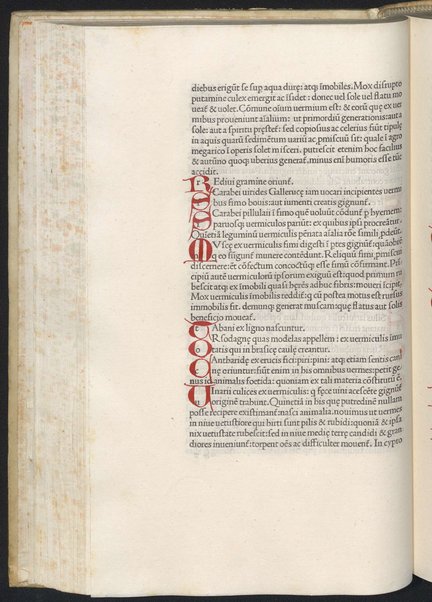 diebus erigūt se sup aqua durę: atq; īmobiles. Mox disrupto
putamine culex emergit ac īsidet: donec uel sole uel flatu mo
ueať & uolet. Cōmune oīum uermium est: & eorū quę ex uer
mibus proueniunt aīalium: ut primordiū generationis: aut a
sole: aut a spiritu pręstet: sed copiosius ac celerius fiūt
in aquis quarū sedimētum uariū ac, pmiscuū sit: quale ī agro
megarico ī operis solet misceri. putrescit etenim hoc facilius
& autūno quoq; uberius generať. minus enī humoris esse tūc
accidit.
R r Ediui gramine oriunť.
Carabei uirides Gallerucę iam uocari incipientes uermi
bus fimo bouis: aut iumenti creatis gignunť.
Carabei pillularii ī fimo quē uoluūt cōdunť p hyemem:
paruosq; uermiculos pariūt: ex quibus ipsi procreātur.
Quietiā leguminū uermiculis pēnata aīalia rōe simili pdeūt.
M Vscę ex uermiculis fimi digesti ī ptes gignunť: quāobrē
q eo fūgunť munere contēdunt. Reliquū fimi, pmiscuū
discernere: et cōfectum concoctūq; esse fimū cōfirmant. Pri
cipiū autē uermiculorū ipsorum exiguū est: quod primum ru
bescit atq; ex imobili quasi hęrēs adhuc fibris: moueri
Mox uermiculus imobilis reddiť: q cū postea motus est rursus
immobilis fit. demunq; generat muscam: quę flatus aut solis
beneficio moueať.
t Abani ex ligno nascuntur.
o Rsodagnę quas modelas appellem: ex uermiculis imu
tatis qui in brasicę caule creantur.
c Antharidę ex erucis fici: piri: pini: atq; etiam sentis cani
nę oriuntur: sūt enim in his omnibus uermes: petit ge
nus id animalis foetida: quoniam ex tali materia cōstituti ē.
U Inarii culices ex uermiculis: q fęce uini acescēte gignūť
originē trahunt. Quinetiā in his quę putredinē nullam
posse recipere existimanť: nasci animalia. nouimus ut uermes
in niue uetustiore qui hirti sunt pilis & rubidi: quoniā & ipsa
nix uetustate rubescit: sed in niue medię terrę candidi & gran
diores inueniunť: torpent oēs ac difficulter mouenť. In cypro